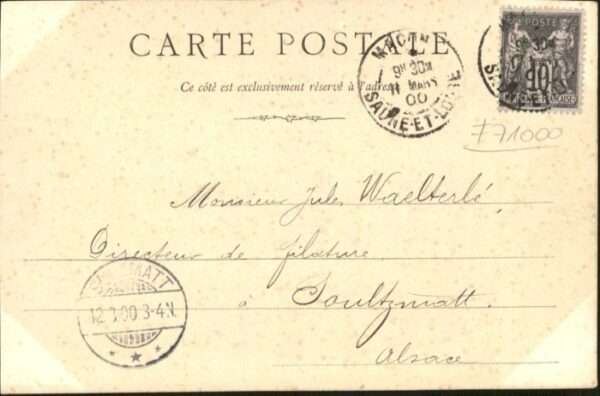 CARTE POSTALE
Ce côté est exclusivement réservé à l'adresse
MACON
9H 30M
11 MARS
00
SAONE-ET-LOIRE
POSTE
10
FRANÇAISE
71000
Monsieur Jules Waelterlé,
Directeur de filature
à Soultzmatt.
Alsace
MATT
12.3.00 3-4N.